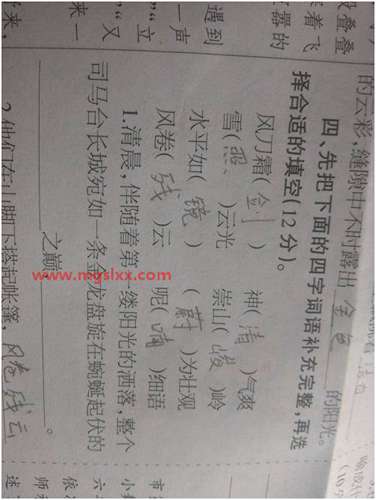 叠叠
着飞
器的
遇到
一声
“立
“又
来一
来、
的云彩,缝隙中不时露出 金色 的阳光。
四、先把下面的四字词语补充完整,再选
择合适的填空(12分)。
风刀霜(剑) 神(清)气爽
雪( )云光 崇山(峻)岭
水平如(镜) (蔚)为壮观
风卷(残)云 呢(喃)细语
1.清晨,伴随着第一缕阳光的洒落,整个
司马台长城宛如一条金龙盘旋在蜿蜒起伏的
之巅。
2.他们在山脚下搭起帐篷,风卷残云
www.mqslxx.com